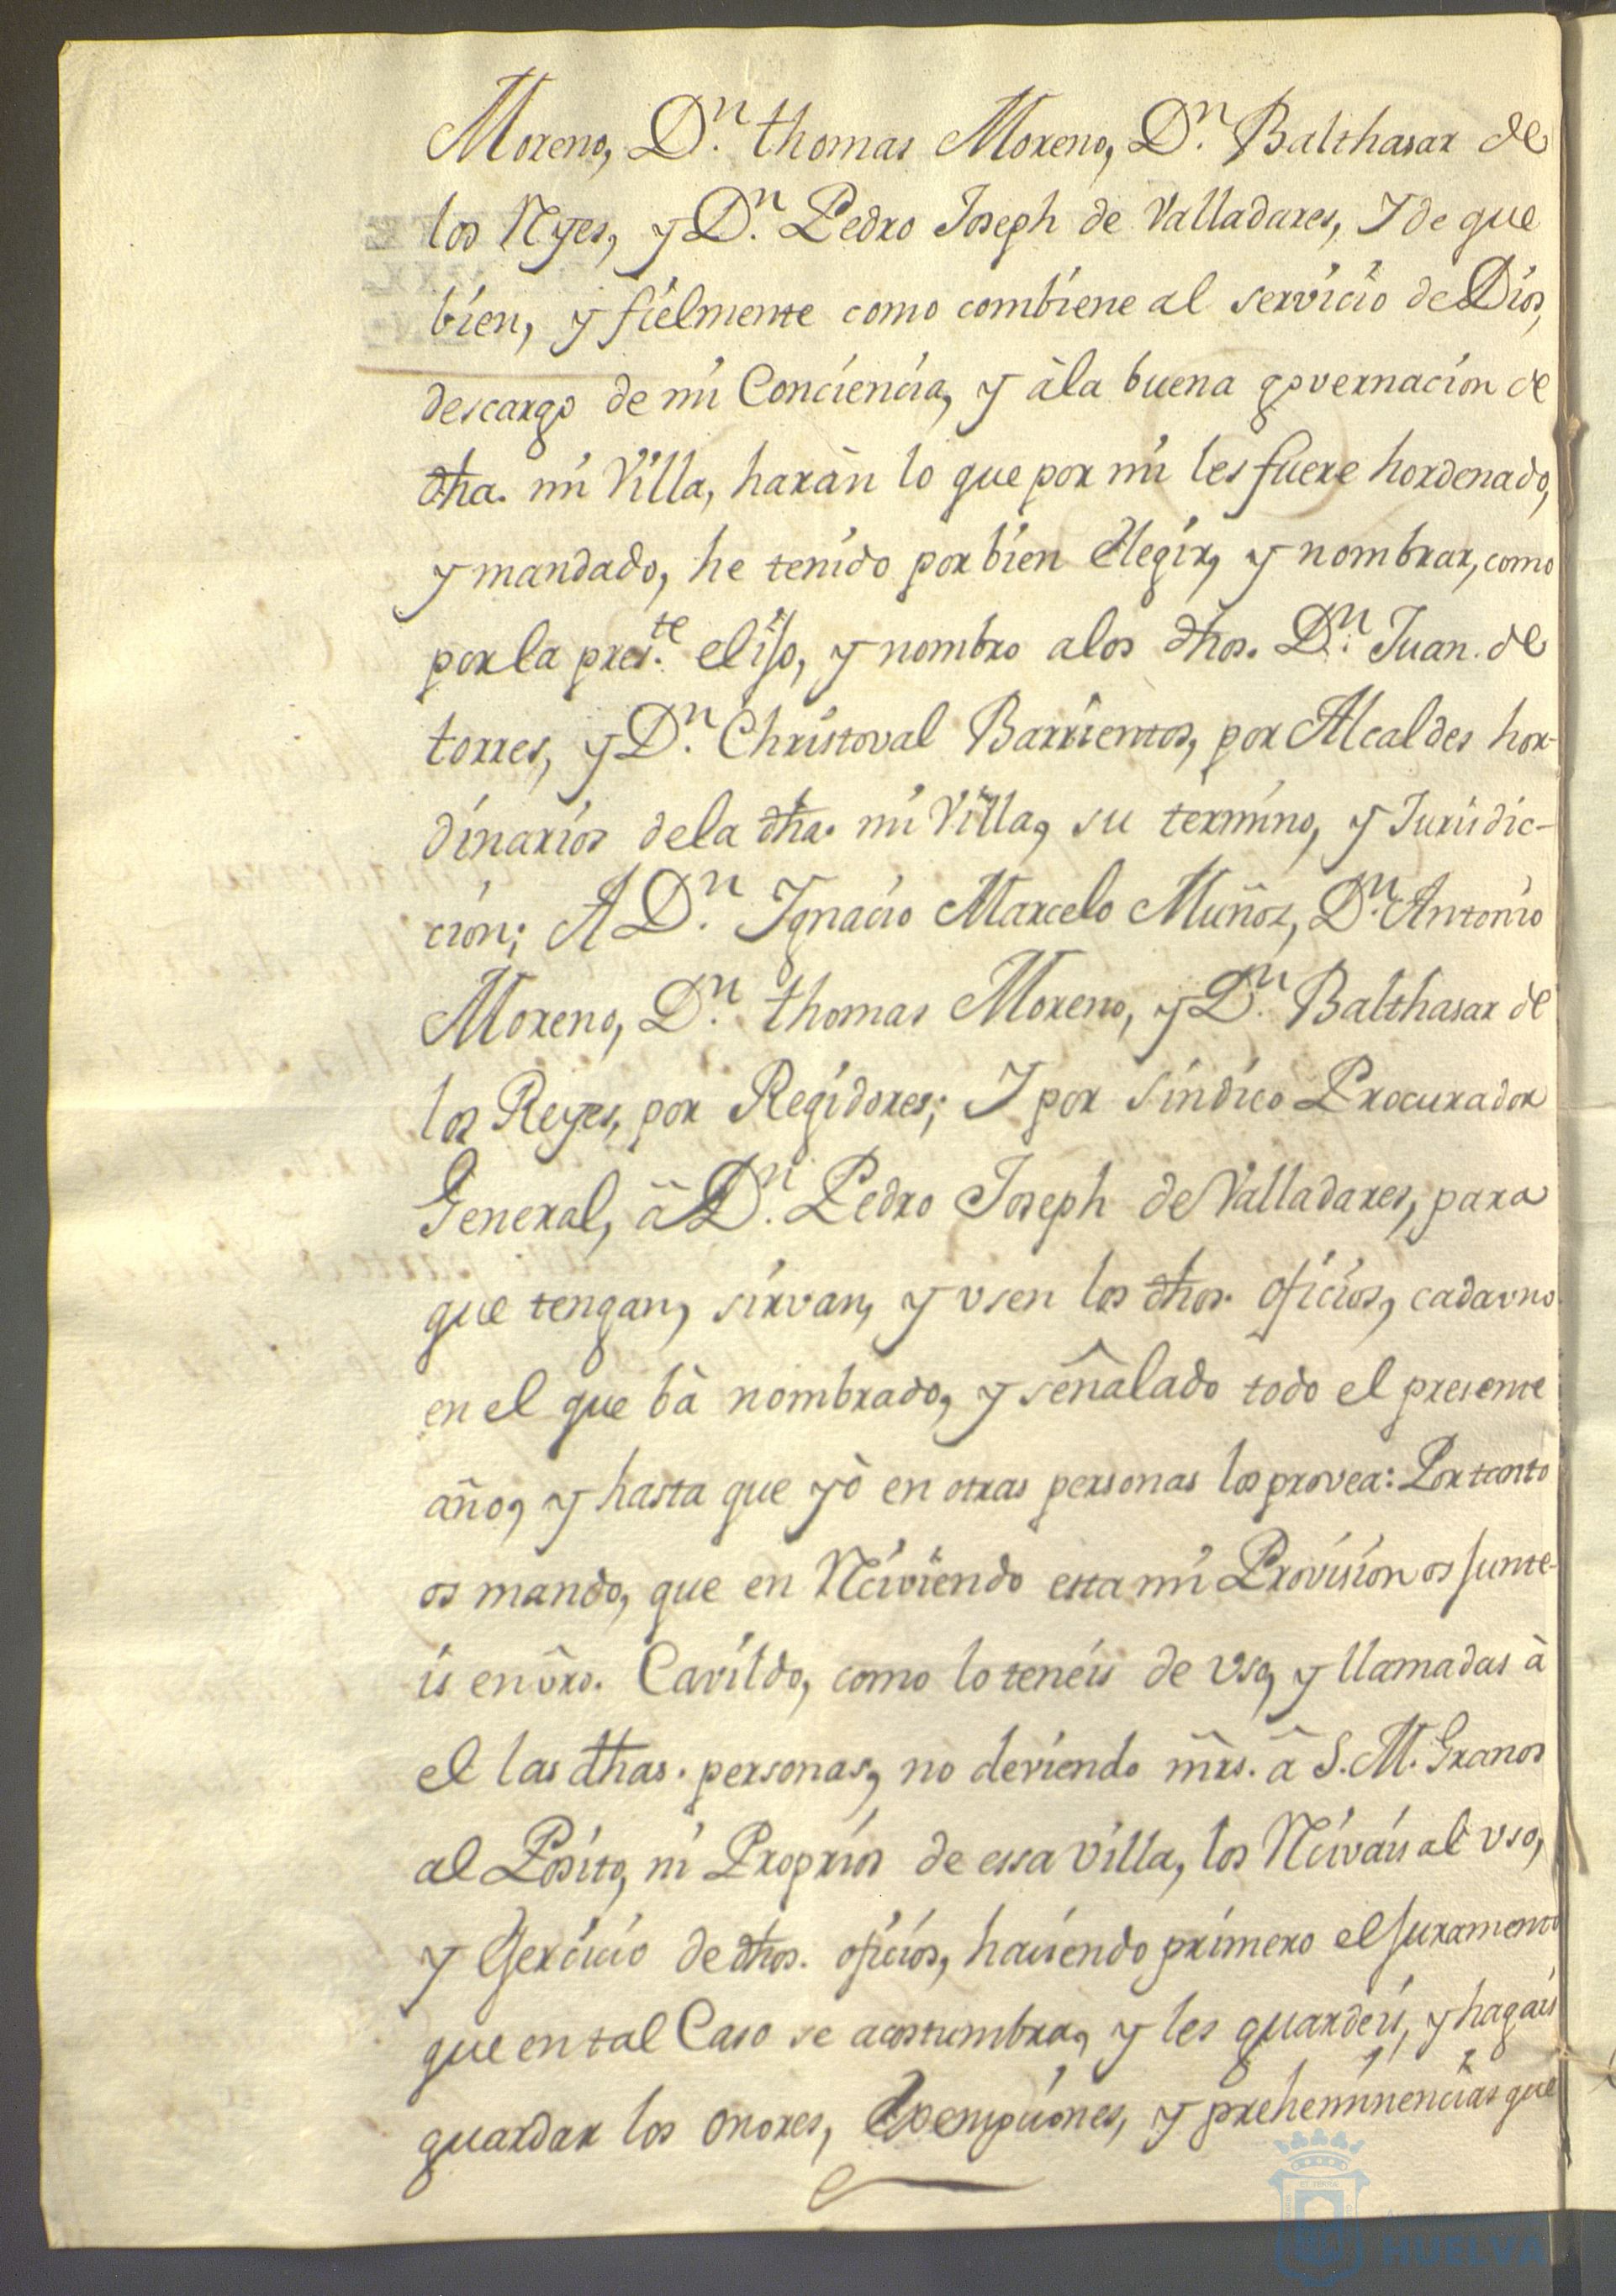 Moreno, Dn. thomas Moreno, Dn. Balthasar de
los Reyes, y Dn. Pedro Joseph de Valladares, Y de que
bien, y fielmente como combiene al servicio de Dios,
descargo de mi Conciencia, y àla buena governacion de
dha. mi Villa, haràn lo que por mi les fuere hordenado,
y mandado, he tenido por bien elegir, y nombrar, como
por la preste. elijo, y nombro a los dhos. Dn. Juan de
torres, y Dn. Christoval Barrientos, por Alcaldes hor-
dinarios dela dha. mi Villa, su termino, y Jurisdic-
cion; A Dn. Ignacio Marcelo Muñoz, Dn. Antonio
Moreno, Dn. thomas Moreno, y Dn. Balthasar de
los Reyes, por Regidores; Y por sindico Procurador
General, à Dn. Pedro Joseph de Valladares, para
que tengan, sirvan, y vsen los dhos. oficios, cadavno
en el que bà nombrado, y señalado todo el presente
año, y hasta que yò en otras personas los provea: Portanto
os mando, que en Reciviendo esta mi Provision os junte-
is en vro. Cavildo, como lo teneis de vso, y llamadas à
el las dhas. personas, no deviendo mrs. à S. M. Granos
al Posito, ni Proprios de essa villa, los Recivais al vso,
y Exercicio de dhos. oficios, haciendo primero el juramento
que en tal Caso se acostumbra, y les guardeis, y hagais
guardar los onores, Exempciones, y preheminencias que
HUELVA